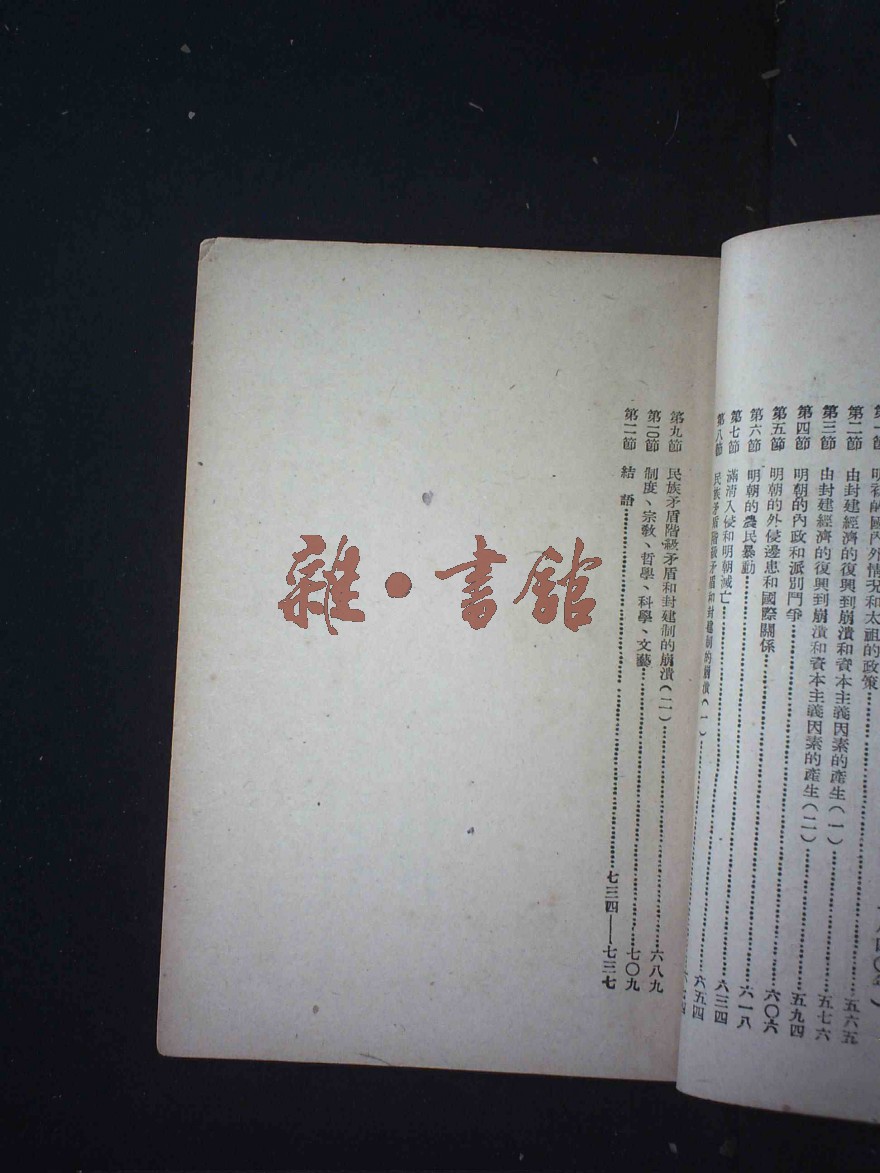 四〇年）
第一節　明初的國內外情況和太祖的政策……五六五
第二節　由封建經濟的復興到崩潰和資本主義因素的產生（一）……五七六
第三節　由封建經濟的復興到崩潰和資本主義因素的產生（二）……五九四
第四節　明朝的內政和派別鬥爭……六〇六
第五節　明朝的外侵邊患和國際關係……六一八
第六節　明朝的農民暴動……六三四
第七節　滿清入侵和明朝滅亡……六五四
第八節　民族矛盾階級矛盾和封建制的崩潰（一）……
第九節　民族矛盾階級矛盾和封建制的崩潰（二）……六八九
第一〇節　制度、宗敎、哲學、科學、文藝……七〇九
第一一節　結語……七三四——七三七
雜·書館